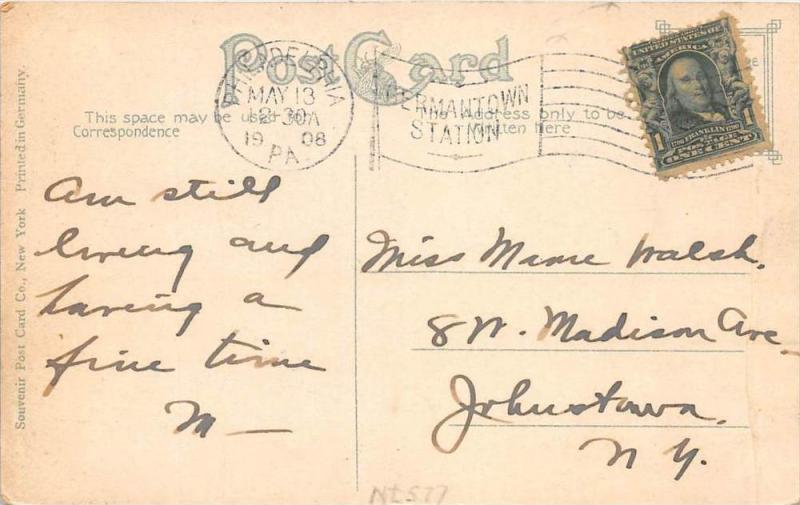 Post Card
PHILADELPHIA
MAY 13
12-30A
1908
PA.
GERMANTOWN
STATION
This space may be used for
Correspondence
The Address only to be
written here
UNITED STATES OF
AMERICA
1 FRANKLIN 1
POSTAGE
ONE CENT
Souvenir Post Card Co., New York Printed in Germany.
Am still
living and
having a
fine time
M —
Miss Mame Walsh.
8 W. Madison Ave
Johnstown.
N Y.